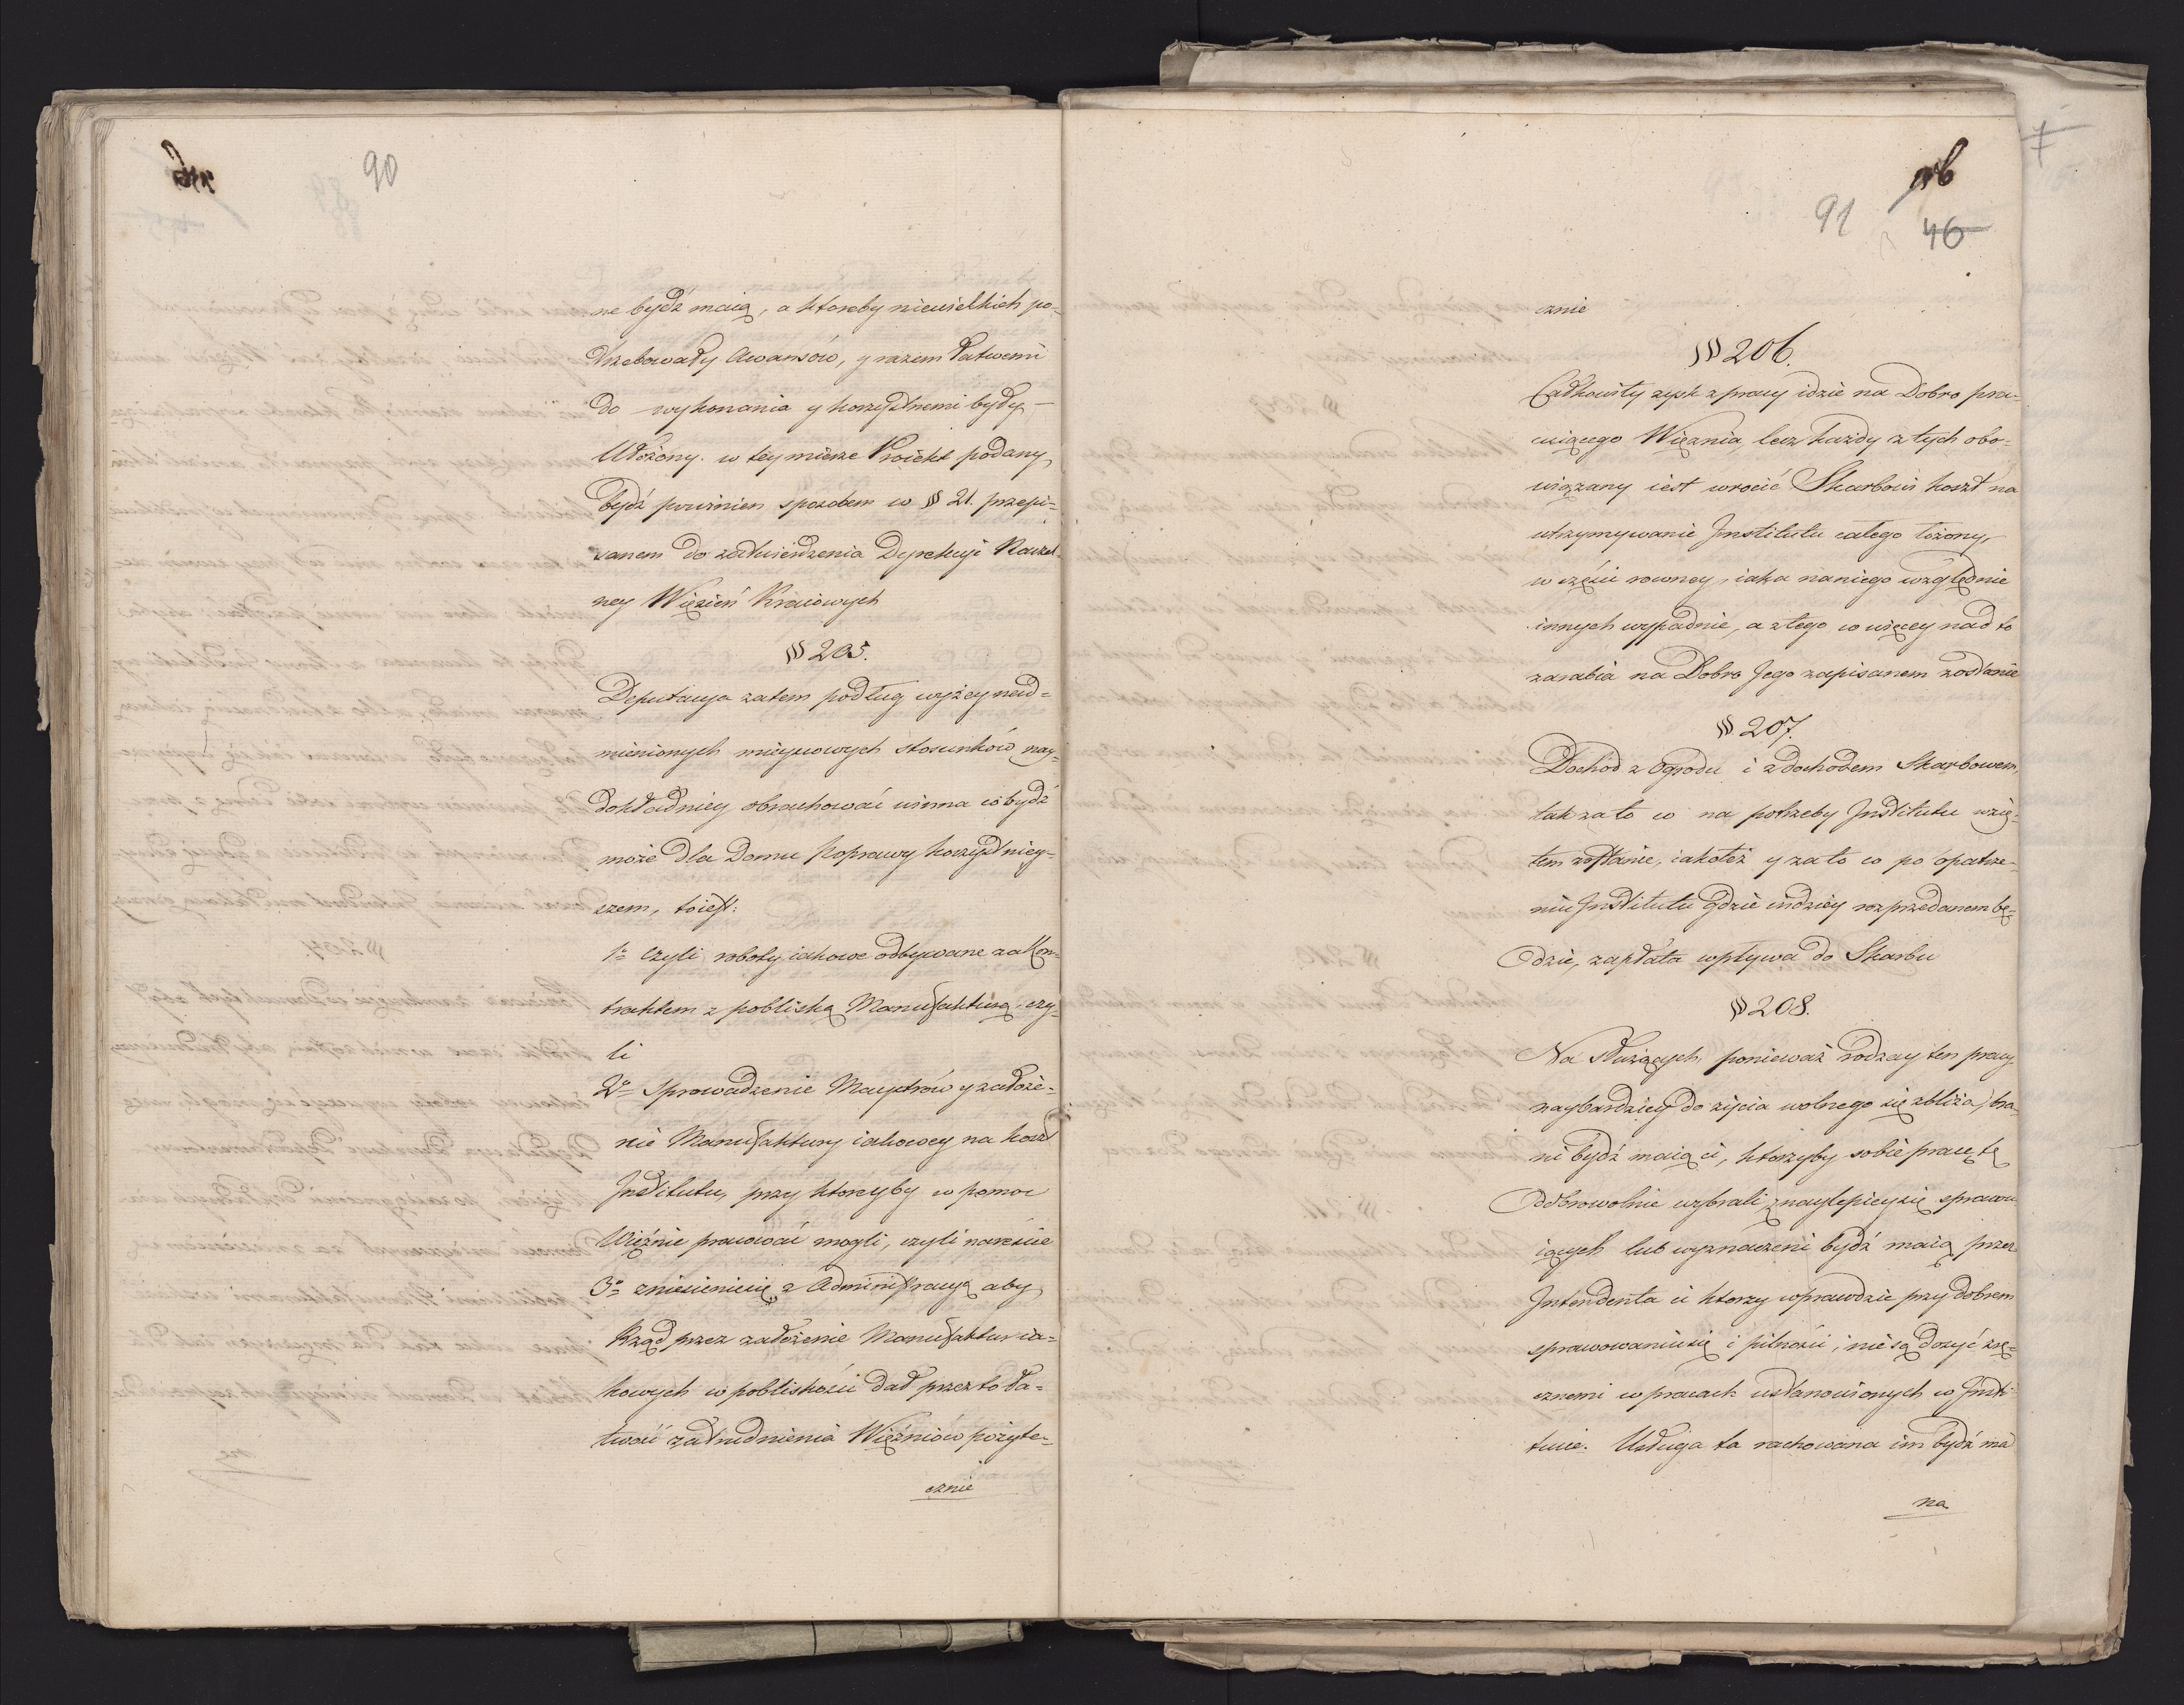 90
ne bydź maią, a ktoreby niewielkich po-
trzebowały Awansów, y razem łatwemi
do wykonania y korzystnemi były –
Ułożony w tey mierze Proiekt podany
bydź powinien sposobem w § 21. przepi-
sanem do zatwierdzenia Dyrekcyi Naczel-
ney Więzień Kraiowych
§ 205.
Deputacya zatem podług wyżey nad-
mienionych mieyscowych stosunków nay-
dokładniey obrachować winna co bydź
może dla Domu Poprawy korzystniey-
szem, toiest:
1o Czyli roboty iakowe odbywane za Kon-
traktem z pobliską Manufakturą czy-
li
2o Sprowadzenie Maystrów y założe-
nie Manufaktury iakowey na koszt
Institutu, przy ktoreyby w pomoc
Więźnie pracować mogli, czyli nareście
3o zniesieniesię z Administracyą aby
Rząd przez założenie Manufaktur ia-
kowych w pobliskości dał przez to ła-
twość zatrudnienia Więźniów pożyte-
cznie
91
46
cznie
§ 206.
Całkowity zysk z pracy idzie na Dobro pra-
cuiącego Więźnia, lecz każdy z tych obo-
wiązany iest wrocić Skarbowi koszt na
utrzymywanie Institutu całego łożony,
w części rowney, iaka naniego względnie
innych wypadnie, a z tego co więcey nad to
zarabia na Dobro Jego zapisanem zostanie
§ 207.
Dochód z Ogrodu i z dochodem Skarbowem,
tak za to co na potrzeby Institutu wzię-
tem zostanie, iakoteż y za to co po opatrze-
niu Institutu gdzie indziey rozprzedanem bę-
dzie, zapłata wpływa do Skarbu
§ 208.
Na Służących, ponieważ rodzay ten pracy
naybardziey do życia wolnego się zbliża, bra-
ni bydź maią ci, ktorzyby sobie pracę tę
dobrowolnie wybrali z naylepiey się sprawu-
iących lub wyznaczeni bydź maią przez
Intendenta ci ktorzy wprawdzie przy dobrem
sprawowaniu się i pilności, nie są dosyć zrę-
cznemi w pracach ustanowionych w Insti-
tucie. Usługa ta rachowana im bydź ma
na